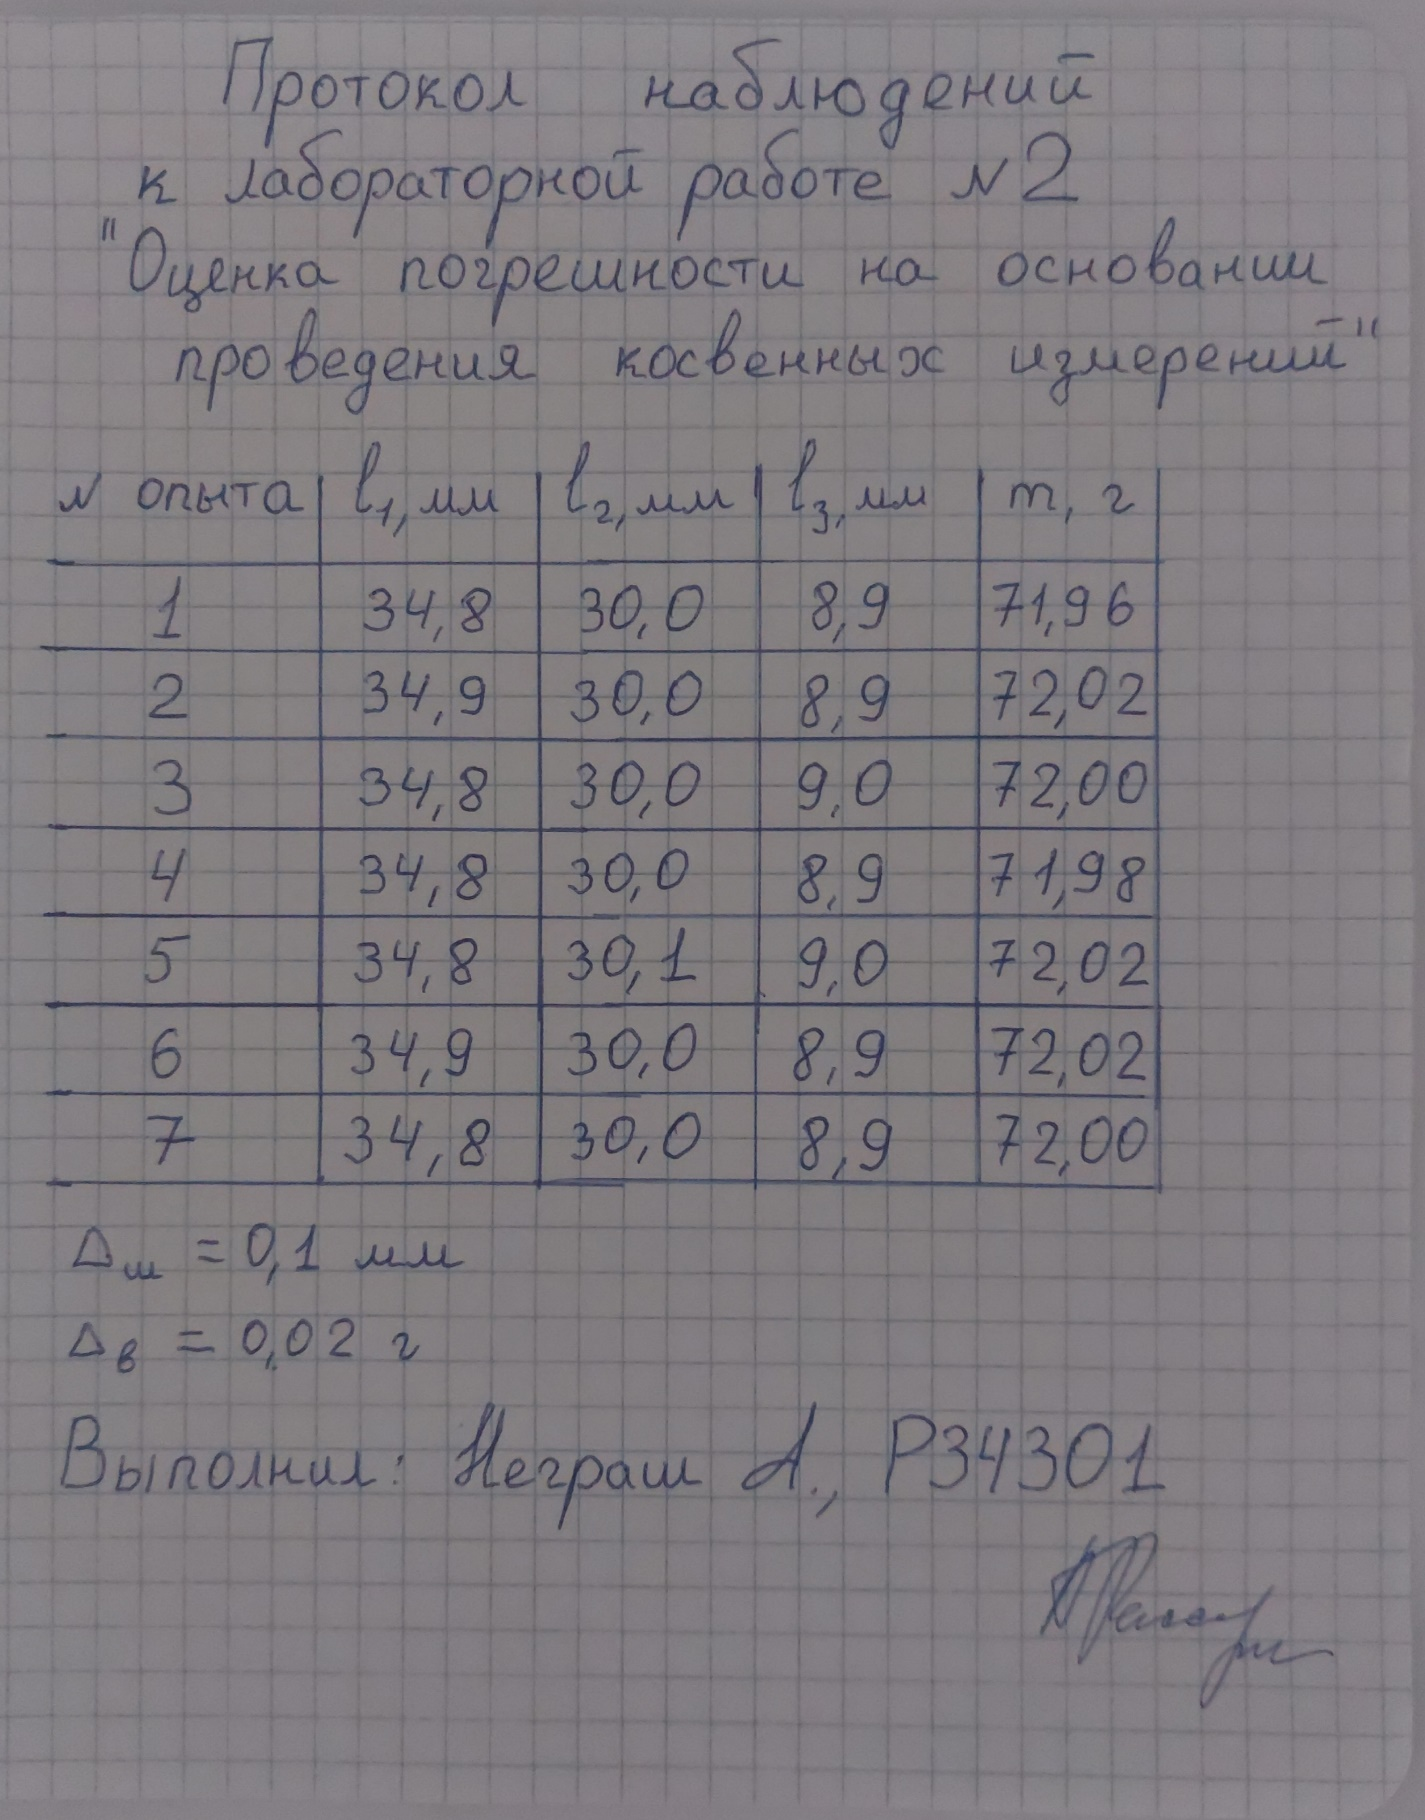 Протокол наблюдений
к лабораторной работе N2
"Оценка погрешности на основании
проведения косвенных измерений"
N опыта l1, мм l2, мм l3, мм m, г
1 34,8 30,0 8,9 71,96
2 34,9 30,0 8,9 72,02
3 34,8 30,0 9,0 72,00
4 34,8 30,0 8,9 71,98
5 34,8 30,1 9,0 72,02
6 34,9 30,0 8,9 72,02
7 34,8 30,0 8,9 72,00
Δш = 0,1 мм
Δв = 0,02 г
Выполнил: Неграш А., Р34301